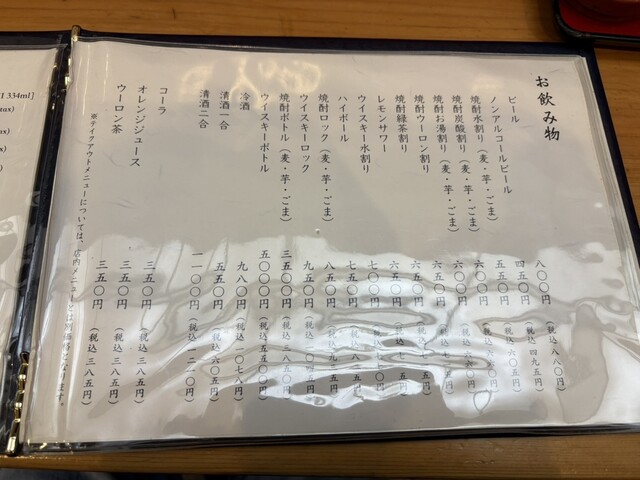 お飲み物
ビール 八〇〇円 (税込 八八〇円)
ノンアルコールビール 四五〇円 (税込 四九五円)
焼酎水割り(麦・芋・ごま) 五五〇円 (税込 六〇五円)
焼酎炭酸割り(麦・芋・ごま) 六〇〇円 (税込 六六〇円)
焼酎お湯割り(麦・芋・ごま) 六〇〇円 (税込 六六〇円)
焼酎ウーロン割り 六〇〇円
焼酎緑茶割り 六五〇円
レモンサワー 六五〇円
ウイスキー水割り 七〇〇円
ハイボール 七五〇円
焼酎ロック(麦・芋・ごま) 八五〇円 (税込 九三五円)
ウイスキーロック 九五〇円
焼酎ボトル(麦・芋・ごま) 三五〇〇円 (税込 三八五〇円)
ウイスキーボトル 五〇〇〇円 (税込 五五〇〇円)
冷酒 九八〇円 (税込 一〇七八円)
清酒一合 五五〇円 (税込 六〇五円)
清酒二合 一一〇〇円 (税込 一二一〇円)
コーラ 三五〇円 (税込 三八五円)
オレンジジュース 三五〇円 (税込 三八五円)
ウーロン茶 三五〇円 (税込 三八五円)
※テイクアウトメニューについては、店内メニューとは別価格となります。
334ml]